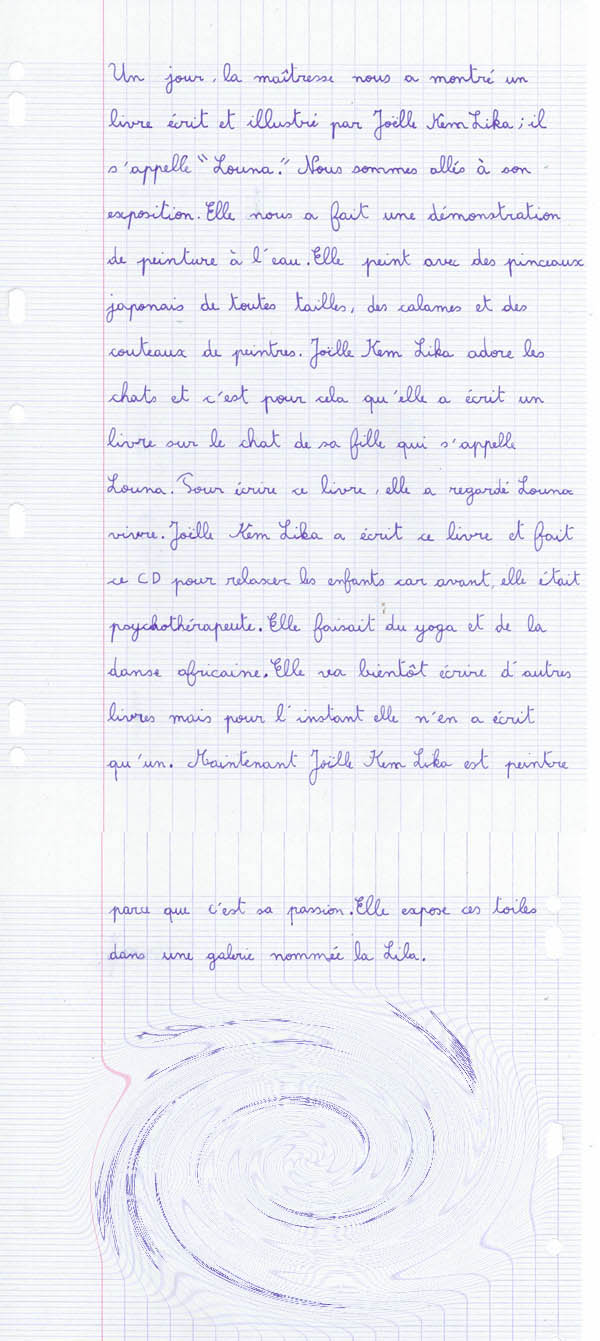 Un jour, la maîtresse nous a montré un
livre écrit et illustré par Joëlle Kem Lika ; il
s'appelle "Louna". Nous sommes allés à son
exposition. Elle nous a fait une démonstration
de peinture à l'eau. Elle peint avec des pinceaux
japonais de toutes tailles, des calames et des
couteaux de peintres. Joëlle Kem Lika adore les
chats et c'est pour cela qu'elle a écrit un
livre sur le chat de sa fille qui s'appelle
Louna. Pour écrire ce livre, elle a regardé Louna
vivre. Joëlle Kem Lika a écrit ce livre et fait
ce CD pour relaxer les enfants car avant, elle était
psychothérapeute. Elle faisait du yoga et de la
danse africaine. Elle va bientôt écrire d'autres
livres mais pour l'instant elle n'en a écrit
qu'un. Maintenant Joëlle Kem Lika est peintre
parce que c'est sa passion. Elle expose ces toiles
dans une galerie nommée la Lila.